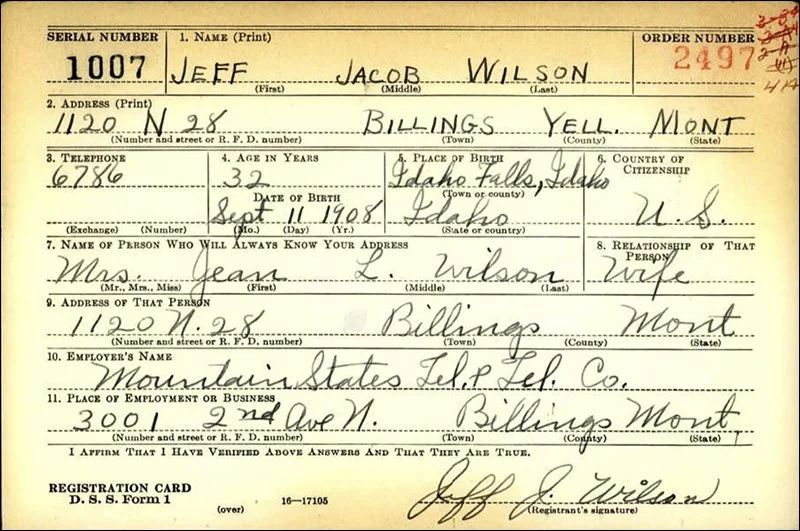 SERIAL NUMBER 1. NAME (Print) ORDER NUMBER
1007 JEFF JACOB WILSON 2497
(First) (Middle) (Last)
2. ADDRESS (Print)
1120 N 28 BILLINGS YELL. MONT
(Number and street or R. F. D. number) (Town) (County) (State)
3. TELEPHONE 4. AGE IN YEARS 5. PLACE OF BIRTH 6. COUNTRY OF CITIZENSHIP
6786 32 Idaho Falls, Idaho
DATE OF BIRTH (Town or county)
Sept 11 1908 Idaho U. S.
(Exchange) (Number) (Mo.) (Day) (Yr.) (State or country)
7. NAME OF PERSON WHO WILL ALWAYS KNOW YOUR ADDRESS 8. RELATIONSHIP OF THAT PERSON
Mrs. Jean L. Wilson Wife
(Mr., Mrs., Miss) (First) (Middle) (Last)
9. ADDRESS OF THAT PERSON
1120 N. 28 Billings Mont
(Number and street or R. F. D. number) (Town) (County) (State)
10. EMPLOYER'S NAME
Mountain States Tel. & Tel. Co.
11. PLACE OF EMPLOYMENT OR BUSINESS
3001 2nd Ave N. Billings Mont.
(Number and street or R. F. D. number) (Town) (County) (State)
I AFFIRM THAT I HAVE VERIFIED ABOVE ANSWERS AND THAT THEY ARE TRUE.
REGISTRATION CARD
D. S. S. Form 1 Jeff J. Wilson
(over) 16—17105 (Registrant's signature)